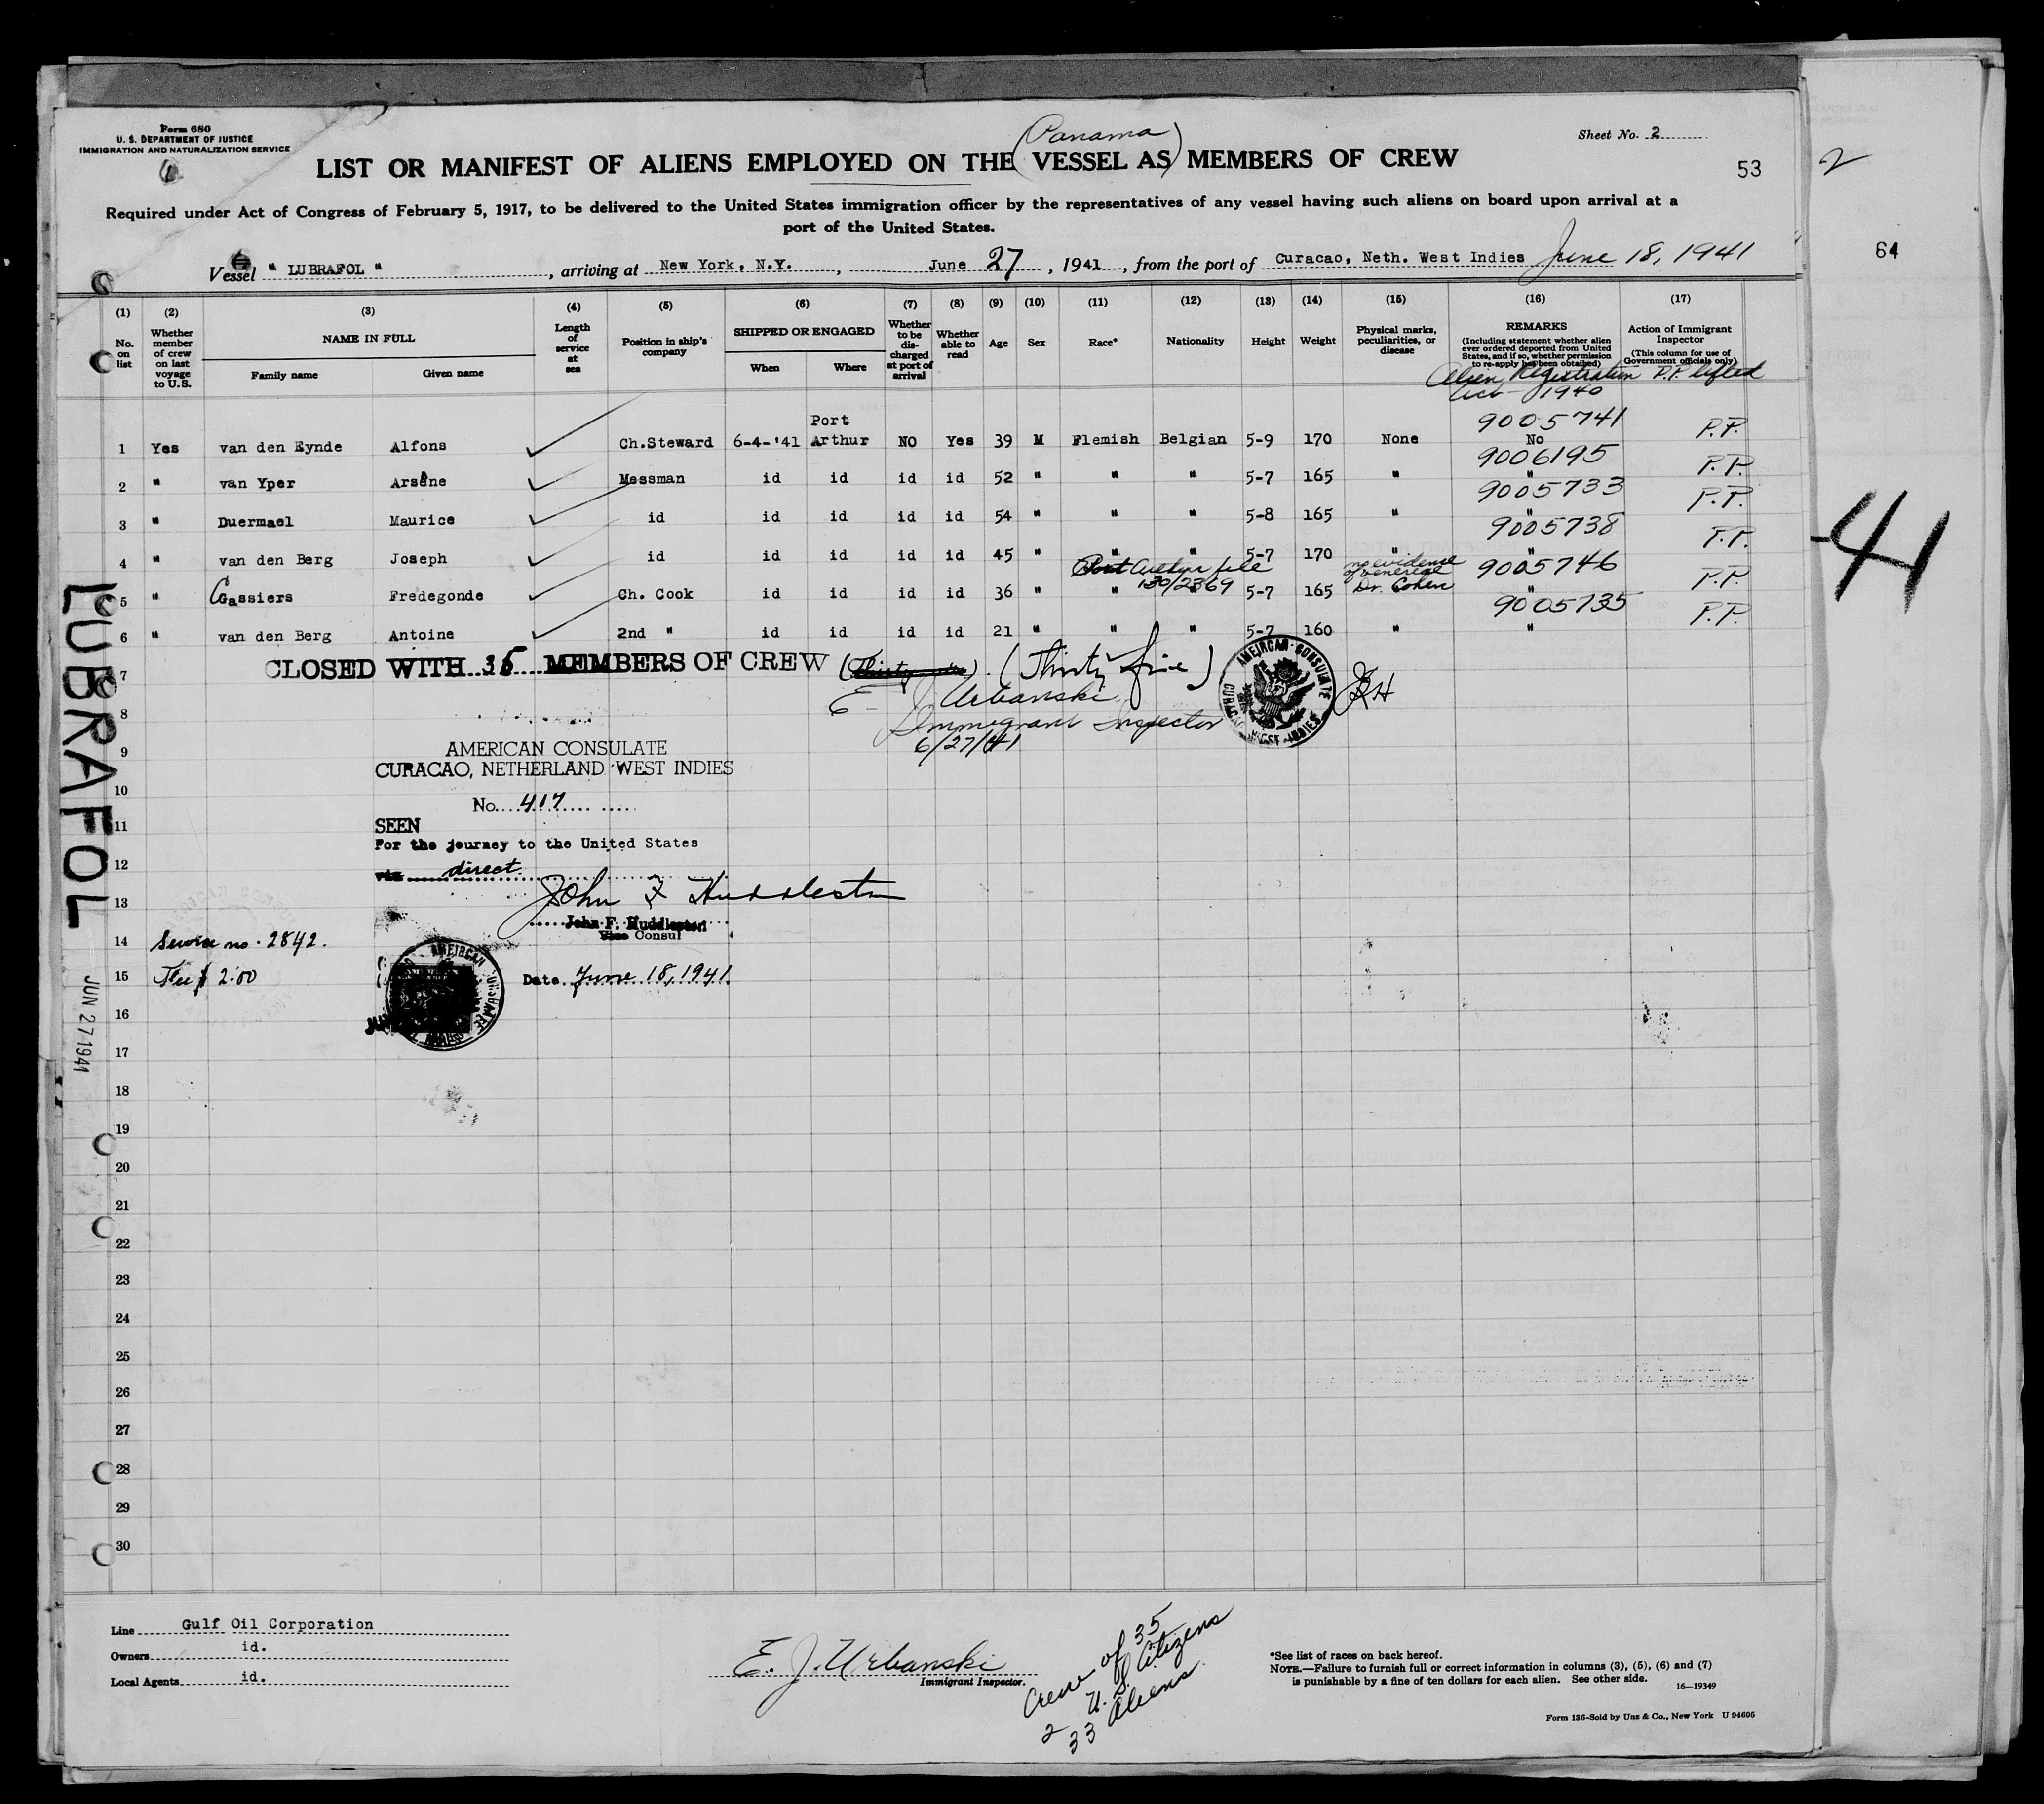 Form 680
U. S. DEPARTMENT OF JUSTICE
IMMIGRATION AND NATURALIZATION SERVICE
Sheet No. 2
(Panama)
LIST OR MANIFEST OF ALIENS EMPLOYED ON THE VESSEL AS MEMBERS OF CREW
53
2
Required under Act of Congress of February 5, 1917, to be delivered to the United States immigration officer by the representatives of any vessel having such aliens on board upon arrival at a
port of the United States.
Vessel " LUBRAFOL ", arriving at New York, N.Y., June 27, 1941, from the port of Curacao, Neth. West Indies June 18, 1941
64
(1) (2) (3) (4) (5) (6) (7) (8) (9) (10) (11) (12) (13) (14) (15) (16) (17)
No. on list
Whether member of crew on last voyage to U.S.
NAME IN FULL
Family name
Given name
Length of service at sea
Position in ship's company
SHIPPED OR ENGAGED
When
Where
Whether to be discharged at port of arrival
Whether able to read
Age
Sex
Race*
Nationality
Height
Weight
Physical marks, peculiarities, or disease
REMARKS
(Including statement whether alien ever ordered deported from United States, and if so, whether permission to re-apply has been obtained)
Action of Immigrant Inspector
(This column for use of Government officials only)
Alien Registration P.P. lifted
Act - 1940
1 Yes van den Eynde Alfons Ch.Steward 6-4-'41 Port Arthur NO Yes 39 M Flemish Belgian 5-9 170 None 9005741 No P.P.
2 " van Yper Arsène Messman id id id id 52 " " " 5-7 165 " 9006195 " P.P.
3 " Duermael Maurice id id id id id 54 " " " 5-8 165 " 9005733 " P.P.
4 " van den Berg Joseph id id id id id 45 " " " 5-7 170 " 9005738 " P.P.
Port Arthur file
130/2369
no evidence
of venereal
Dr. Cohen
5 " Cassiers Fredegonde Ch. Cook id id id id 36 " " 5-7 165 9005746 " P.P.
6 " van den Berg Antoine 2nd " id id id id 21 " " " 5-7 160 " 9005735 " P.P.
CLOSED WITH 35 MEMBERS OF CREW (Thirty five)
E J Urbanski
Immigrant Inspector
6/27/41
AMERICAN CONSULATE
JFH
7
8
AMERICAN CONSULATE
9
CURACAO, NETHERLAND WEST INDIES
10
No. 417
11
SEEN
For the journey to the United States
12
via direct
John F Huddleston
13
John F. Huddleston
Vice Consul
14 Service no. 2842.
15 Fee $ 2.00
Date June 18, 1941.
16
17
18
19
20
21
22
23
24
25
26
27
28
29
30
LUBRAFOL
JUN 27 1941
41
Line Gulf Oil Corporation
Owners id.
Local Agents id.
E. J. Urbanski
Immigrant Inspector.
Crew of 35
2 U.S. Citizens
33 Aliens
*See list of races on back hereof.
NOTE.—Failure to furnish full or correct information in columns (3), (5), (6) and (7)
is punishable by a fine of ten dollars for each alien. See other side.
16—19349
Form 136-Sold by Unz & Co., New York U 94605